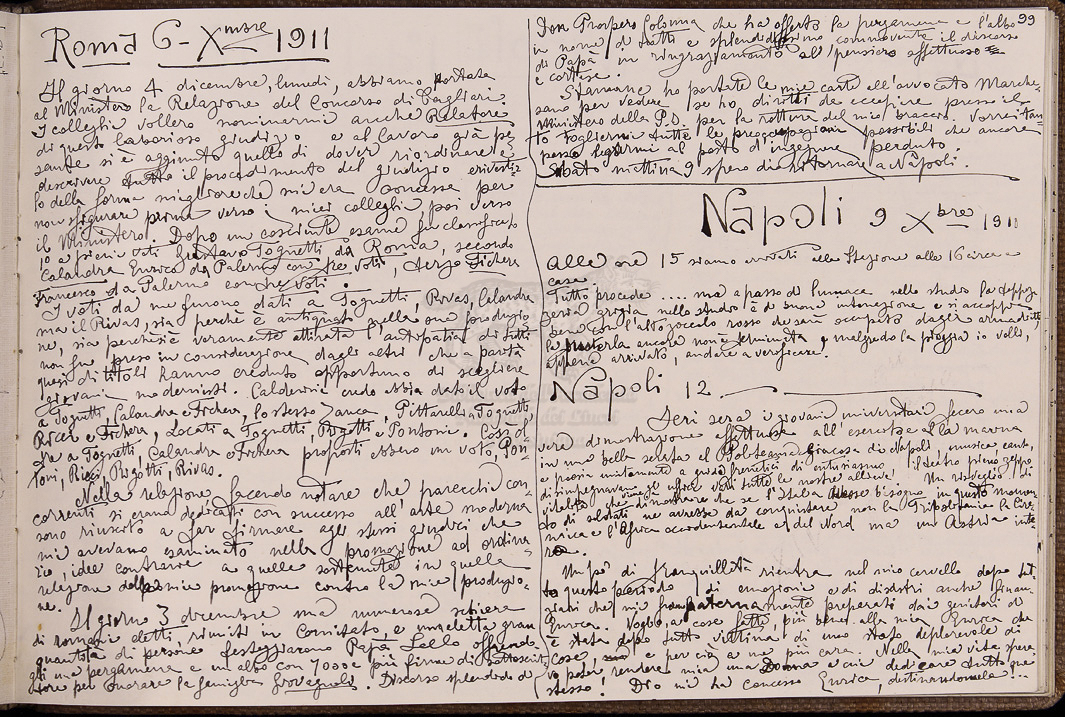 Roma 6-Xmbre 1911
Il giorno 4 dicembre, lunedì, abbiamo portata
al Ministero la Relazione del Concorso di Cagliari.
I colleghi vollero nominarmi anche Relatore
di questo laborioso giudizio e al lavoro già pe-
sante si è aggiunto quello di dover riordinare e
descrivere tutto il procedimento del giudizio
lo della forma migliore che mi era concessa per
non sfigurare prima verso i miei colleghi poi verso
il Ministero. Dopo un cosciente esame fu classificato
1o a pieni voti Gustavo Tognetti da Roma, secondo
Calandra Enrico da Palermo con tre voti, terzo Fichera
Francesco da Palermo con tre voti.
I voti da me furono dati a Tognetti, Rivas, Calandra
ma il Rivas, sia perchè è antiquato nella sua produzio
ne, sia perchè si è veramente attirata l'antipatia di tutti
non fu preso in considerazione dagli altri che a parità
quasi di titoli hanno creduto opportuno di scegliere
giovani modernisti. Calderini credo abbia dato il voto
a Tognetti, Calandra e Fichera, lo stesso Zanca, Pittarelli a Tognetti,
Ricci e Fichera, Locati a Tognetti, Bigotti e Pontoni. Così ol-
tre a Tognetti, Calandra e Fichera proposti ebbero un voto, Pon-
toni, Ricci, Bigotti, Rivas.
Nella relazione facendo notare che parecchi con-
correnti si erano dedicati con successo all'arte moderna
sono riuscito a far firmare agli stessi giudici che
mi avevano esaminato nella promozione ad ordina-
rio, idee contrarie a quelle sostenute in quella
relazione della mia promozione contro la mia produzio-
ne.
Il giorno 3 dicembre una numerosa schiera
di romani eletti, riuniti in Comitato e un'eletta gran
quantità di persone festeggiarono Papà Lello offrendo-
gli una pergamena e un albo con 7000 e più firme di sottoscrit-
tori per onorare la famiglia Giovagnoli. Discorso splendido di
99
Don Prospero Colonna che ha offerto la pergamena e l'albo
in nome di tutti e splendidissimo commovente il discorso
di Papà in ringraziamento al pensiero affettuoso
e cortese.
Stamane ho portate le mie carte all'avvocato Marche-
sano per vedere se ho diritti da accepire presso il
Ministero della P.S. per la rottura del mio braccio. Vorrei tan-
to togliermi tutte le preoccupazioni possibili che ancora
posso legarmi al posto d'ingegnere perduto.
Sabato mattina 9 spero di ritornare a Napoli.
Napoli 9 Xbre 1911
Alle ore 15 siamo arrivati alla Stazione alle 16 circa a
casa.
Tutto procede .... ma a passo di lumaca nello studio la tappez-
zeria grigia nello studio è di buona intonazione e si accoppia
bene con l'alto zoccolo rosso che sarà occupato dagli armadietti
la ancora non è terminata e malgrado la pioggia io volli,
appena arrivato, andare a verificare.
Napoli 12.
Ieri sera i giovani universitari fecero una
vera dimostrazione affettuosa all'esercito e alla marina
in una bella serata al Politeama Giacosa di Napoli, musica canto,
e poesia unitamente a gridi frenetici di entusiasmo, il teatro pieno zeppo
disimpegnavano gli uffici varii tutte le nostre allieve. Un risveglio di
vitalità che viene a dimostrare che se l'Italia avesse bisogno in questo momen-
to di soldati ne avrebbe da conquistare non la Tripolitania la Cire-
naica e l'Africa occidentale e del Nord ma un'Austria inte
ra.
Un pò di tranquillità rientra nel mio cervello dopo tut-
to questo periodo di emozioni e di disastri anche finan-
ziari che mi furono paternamente preparati dai genitori di
Enrica. Voglio a cose fatte, più bene alla mia Enrica che
è stata dopo tutto vittima di uno stato deplorevole di
cose e perciò a me più cara. Nella mia vita spera
vo poter rendere mia una Donna a cui dedicare tutto me
stesso! Dio mi ha concesso Enrica, destinandomela!...